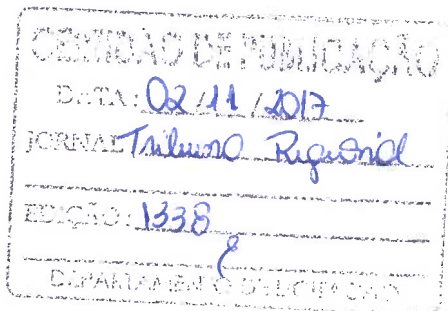 CERTIDÃO DE PUBLICAÇÃO
DATA: 02/11/2017
JORNAL Tribuna Regional
EDIÇÃO: 1338
DEPARTAMENTO DE LICITAÇÃO